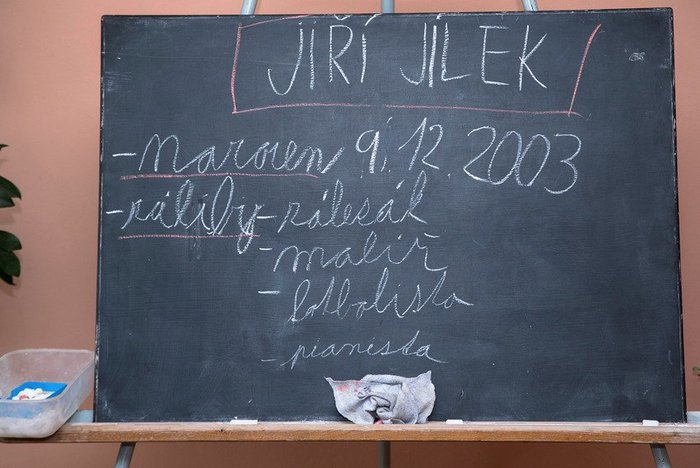 JIŘÍ JÍLEK
- narozen 9. 12. 2003
- záliby - zálesák
- malíř
- fotbalista
- pianista